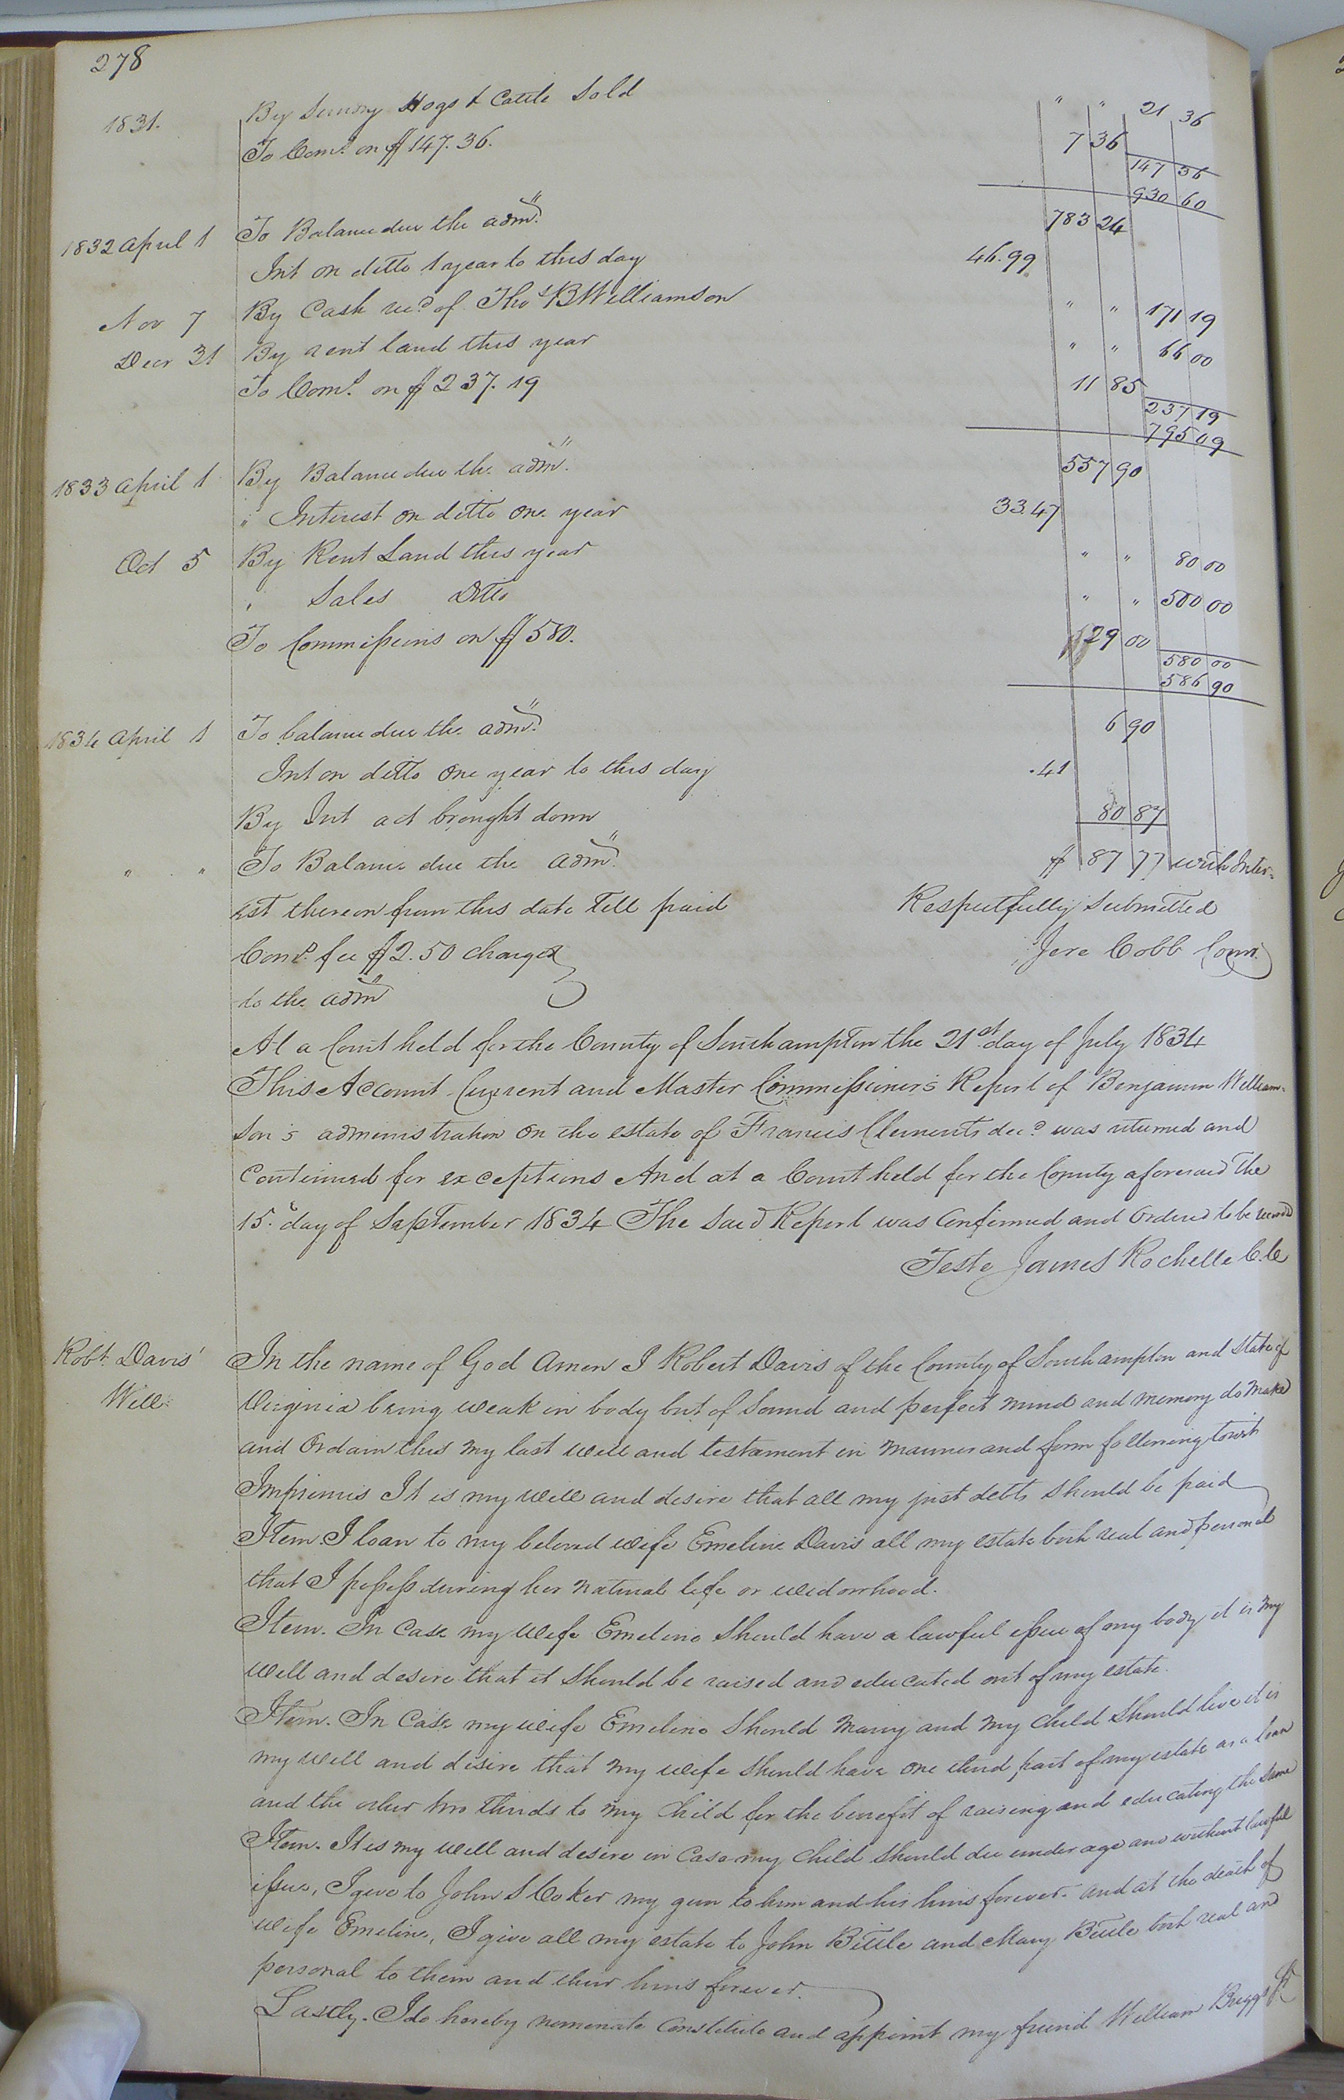 278
1831. By Sundry Hogs & Cattle Sold " " 21 36
To Com.s on $147.36. 7 36
147 36
930 60
1832 April 1 To Balance due the adm.r 783 24
Int on ditto 1 year to this day 46.99
Nov 7 By Cash rec.d of Tho.s B Williamson " " 171 19
Decr 31 By rent land this year " " 66 00
To Com.s on $237.19 11 85
237 19
795 09
1833 April 1 By Balance due the adm.r 557 90
" Interest on ditto one year 33.47
Oct 5 By Rent Land this year " " 80 00
" Sales Ditto " " 500 00
To Commissions on $580. 29 00
580 00
586 90
1834 April 1 To balance due the adm.r 6 90
Int on ditto one year to this day .41
By Int act brought down 80 87
" " To Balance due the adm.r $ 87 77 with Inter-
est thereon from this date till paid Respectfully Submitted
Com.s fee $2.50 charged Jere Cobb Comr.
to the admr
At a Court held for the County of Southampton the 21st day of July 1834
This Account Current and Master Commissioner's Report of Benjamin William-
son's administration on the estate of Francis Clements dec.d was returned and
Continued for exceptions And at a Court held for the County aforesaid the
15.th day of September 1834 The said Report was Confirmed and Ordered to be record
Teste James Rochelle C.C.
Robt. Davis' In the name of God Amen I Robert Davis of the County of Southampton and State of
Will. Virginia being weak in body but of Sound and perfect mind and memory do make
and Ordain this my last will and testament in manner and form following towit
Imprimis It is my will and desire that all my just debts should be paid
Item. I loan to my beloved wife Emeline Davis all my estate both real and personal
that I possess during her natural life or widowhood.
Item. In Case my Wife Emeline Should have a lawful issue of my body it is my
will and desire that it should be raised and educated out of my estate.
Item. In Case my wife Emeline Should marry and my child Should live it is
my will and desire that my wife should have one third part of my estate as a loan
and the other two thirds to my child for the benefit of raising and educating the same
Item. It is my will and desire in Case my child should die under age and without lawful
issue, I give to John S Coker my gun to him and his heirs forever. And at the death of
wife Emeline, I give all my estate to John Bittle and Mary Bittle both real and
personal to them and their heirs forever.
Lastly. I do hereby nominate Constitute and appoint my friend William Briggs Jr